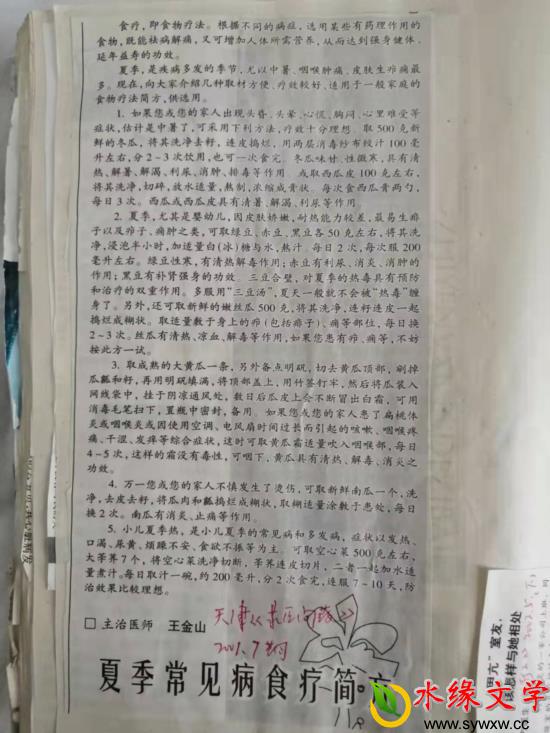 食疗，即食物疗法。根据不同的病症，选用某些有药理作用的
食物，既能祛病解痛，又可增加人体所需营养，从而达到强身健体、
延年益寿的功效。
夏季，是疾病多发的季节，尤以中暑、咽喉肿痛、皮肤生疖痛最
多。现在，向大家介绍几种取材方便、疗效较好、适用于一般家庭的
食物疗法简方，供选用。
1. 如果您或您的家人出现头昏、头晕、心慌、胸闷、心里难受等
症状，估计是中暑了，可采用下列方法，疗效十分理想。取500克新
鲜的冬瓜，将其洗净去籽，连皮捣烂，用两层消毒纱布绞汁100毫
升左右，分2～3次饮用，也可一次食完。冬瓜味甘、性微寒，具有清
热、解暑、解渴、利尿、消肿、排毒等作用。或取西瓜皮100克左右，
将其洗净，切碎，放水适量，熬制，浓缩成膏状。每次食西瓜膏两勺，
每日3次。西瓜或西瓜皮具有清暑、解渴、利尿等作用。
2. 夏季，尤其是婴幼儿，因皮肤娇嫩，耐热能力较差，最易生痱
子以及疖子、痈肿之类，可取绿豆、赤豆、黑豆各50克左右，将其洗
净，浸泡半小时，加适量白(冰)糖与水，熬汁。每日2次，每次服200
毫升左右。绿豆性寒，有清热解毒作用；赤豆有利尿、消炎、消肿的
作用；黑豆有补肾强身的功效。三豆合壁，对夏季的热毒具有预防
和治疗的双重作用。多服用“三豆汤”，夏天一般就不会被“热毒”缠
身了。另外，还可取新鲜的嫩丝瓜500克，将其洗净，连籽连皮一起
捣烂成糊状。取适量敷于身上的疖(包括痱子)、痈等部位，每日换
2～3次。丝瓜有清热、凉血、解毒等作用，如果您患有疖、痈等，不妨
按此方一试。
3. 取成熟的大黄瓜一条，另外备点明矾，切去黄瓜顶部，剜掉
瓜瓤和籽，再用明矾填满，将顶部盖上，用竹签钉牢，然后将瓜装入
网线袋中，挂于阴凉通风处，数日后瓜皮上会不断冒出白霜，可用
消毒毛笔扫下，置瓶中密封，备用。如果您或您的家人患了扁桃体
炎或咽喉炎或因使用空调、电风扇时间过长而引起的咳嗽、咽喉疼
痛、干涩、发痒等综合症状，这时可取黄瓜霜适量吹入咽喉部，每日
4～5次，这样的霜没有毒性，可咽下，黄瓜具有清热、解毒、消炎之
功效。
4. 万一您或您的家人不慎发生了烫伤，可取新鲜南瓜一个，洗
净，去皮去籽，将瓜肉和瓤捣烂成糊状，取糊适量涂敷于患处，每日
换2次。南瓜有消炎、止痛等作用。
5. 小儿夏季热，是小儿夏季的常见病和多发病，症状以发热、
口渴、尿黄、烦躁不安、食欲不振等为主。可取空心菜500克左右，
大荸荠7个，将空心菜洗净切断，荸荠连皮切片，二者一起加水适
量煮汁。每日取汁一碗，约200毫升，分2次食完，连服7～10天，防
治效果比较理想。
□ 主治医师 王金山
2001.7
夏季常见病食疗简方
室友，
该怎样与她相处
水缘文学
www.sywxw.cc